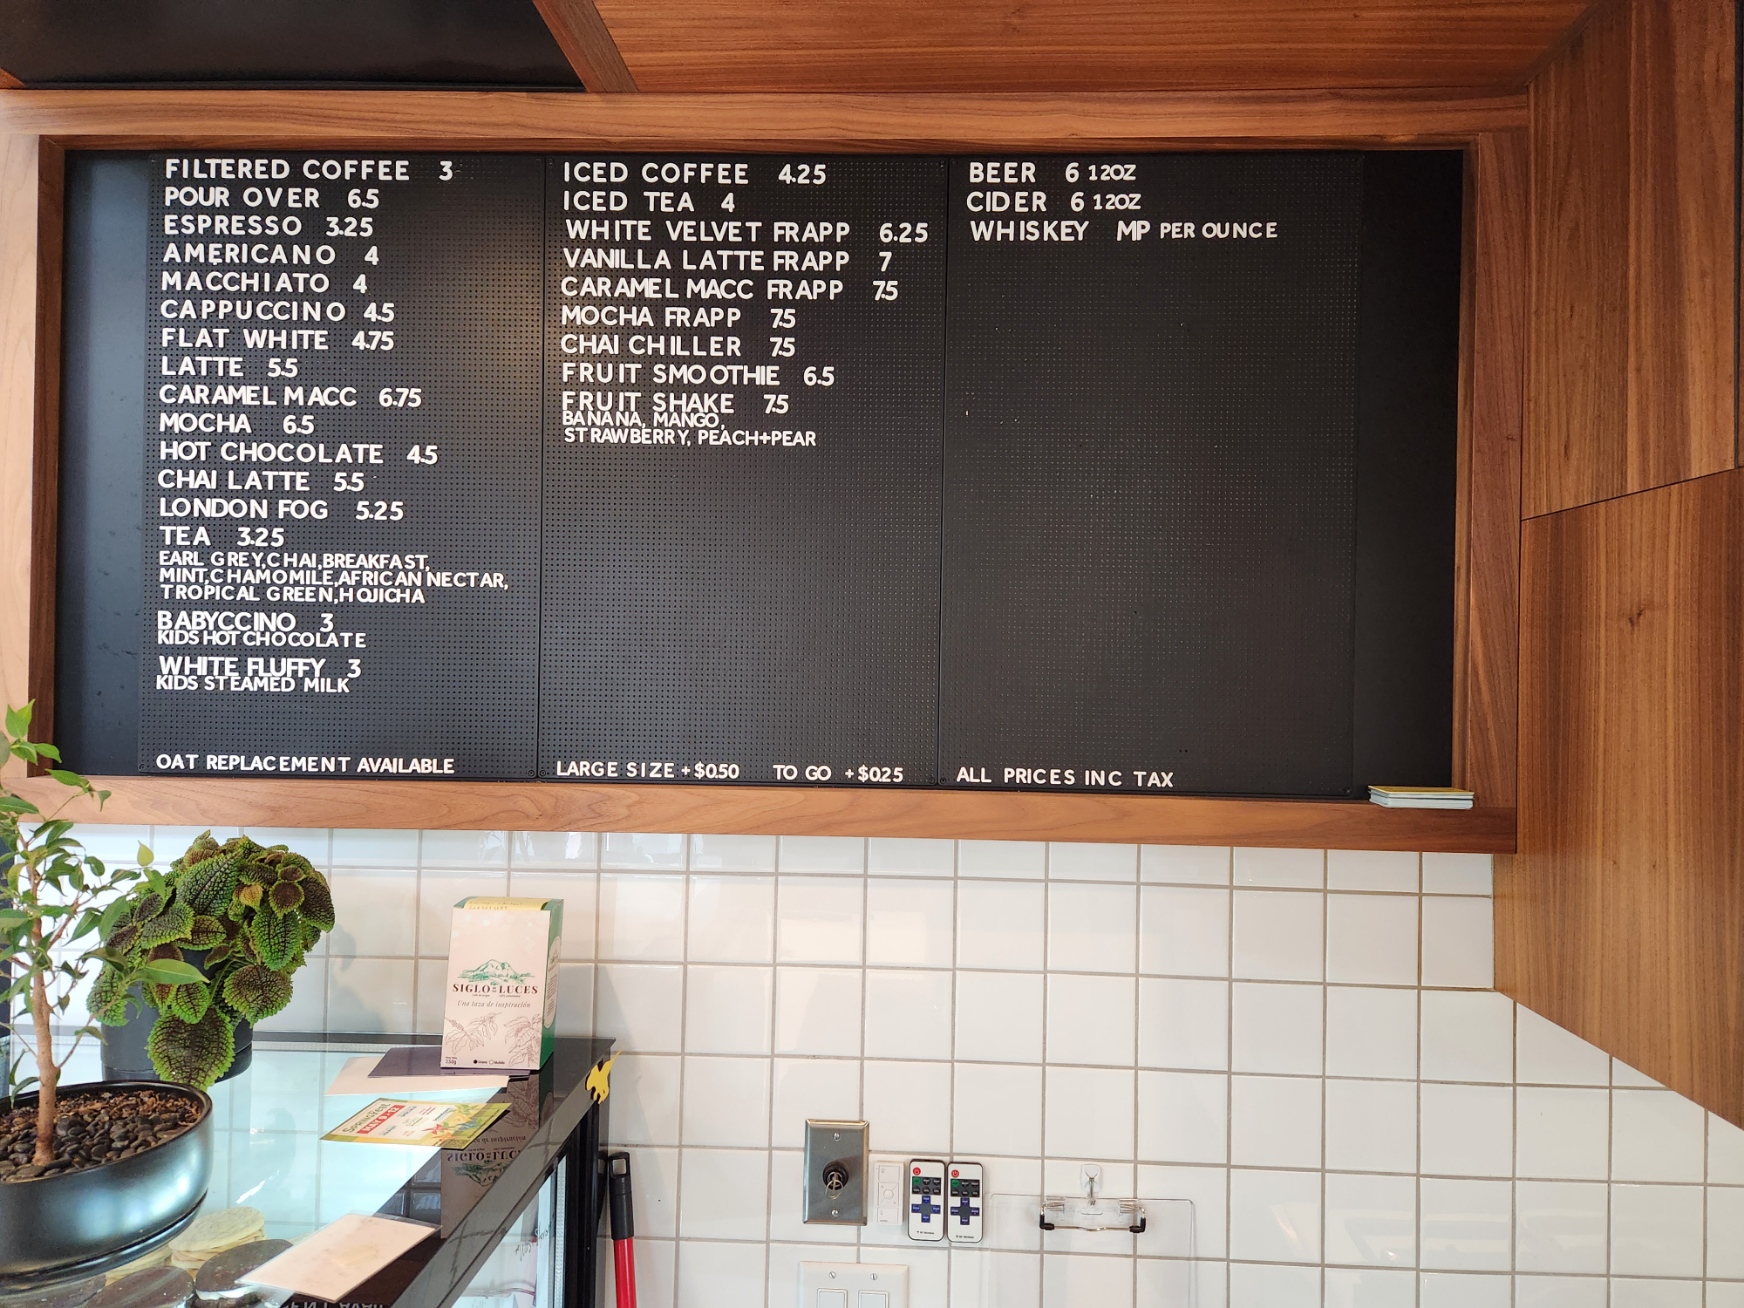 FILTERED COFFEE 3
POUR OVER 6.5
ESPRESSO 3.25
AMERICANO 4
MACCHIATO 4
CAPPUCCINO 4.5
FLAT WHITE 4.75
LATTE 5.5
CARAMEL MACC 6.75
MOCHA 6.5
HOT CHOCOLATE 4.5
CHAI LATTE 5.5
LONDON FOG 5.25
TEA 3.25
EARL GREY,CHAI,BREAKFAST,
MINT,CHAMOMILE,AFRICAN NECTAR,
TROPICAL GREEN,HOJICHA
BABYCCINO 3
KIDS HOT CHOCOLATE
WHITE FLUFFY 3
KIDS STEAMED MILK
OAT REPLACEMENT AVAILABLE
ICED COFFEE 4.25
ICED TEA 4
WHITE VELVET FRAPP 6.25
VANILLA LATTE FRAPP 7
CARAMEL MACC FRAPP 7.5
MOCHA FRAPP 7.5
CHAI CHILLER 7.5
FRUIT SMOOTHIE 6.5
FRUIT SHAKE 7.5
BANANA, MANGO,
STRAWBERRY, PEACH+PEAR
LARGE SIZE +$0.50 TO GO +$0.25
BEER 6 12OZ
CIDER 6 12OZ
WHISKEY MP PER OUNCE
ALL PRICES INC TAX
SIGLO DE LUCES
Una taza de inspiración